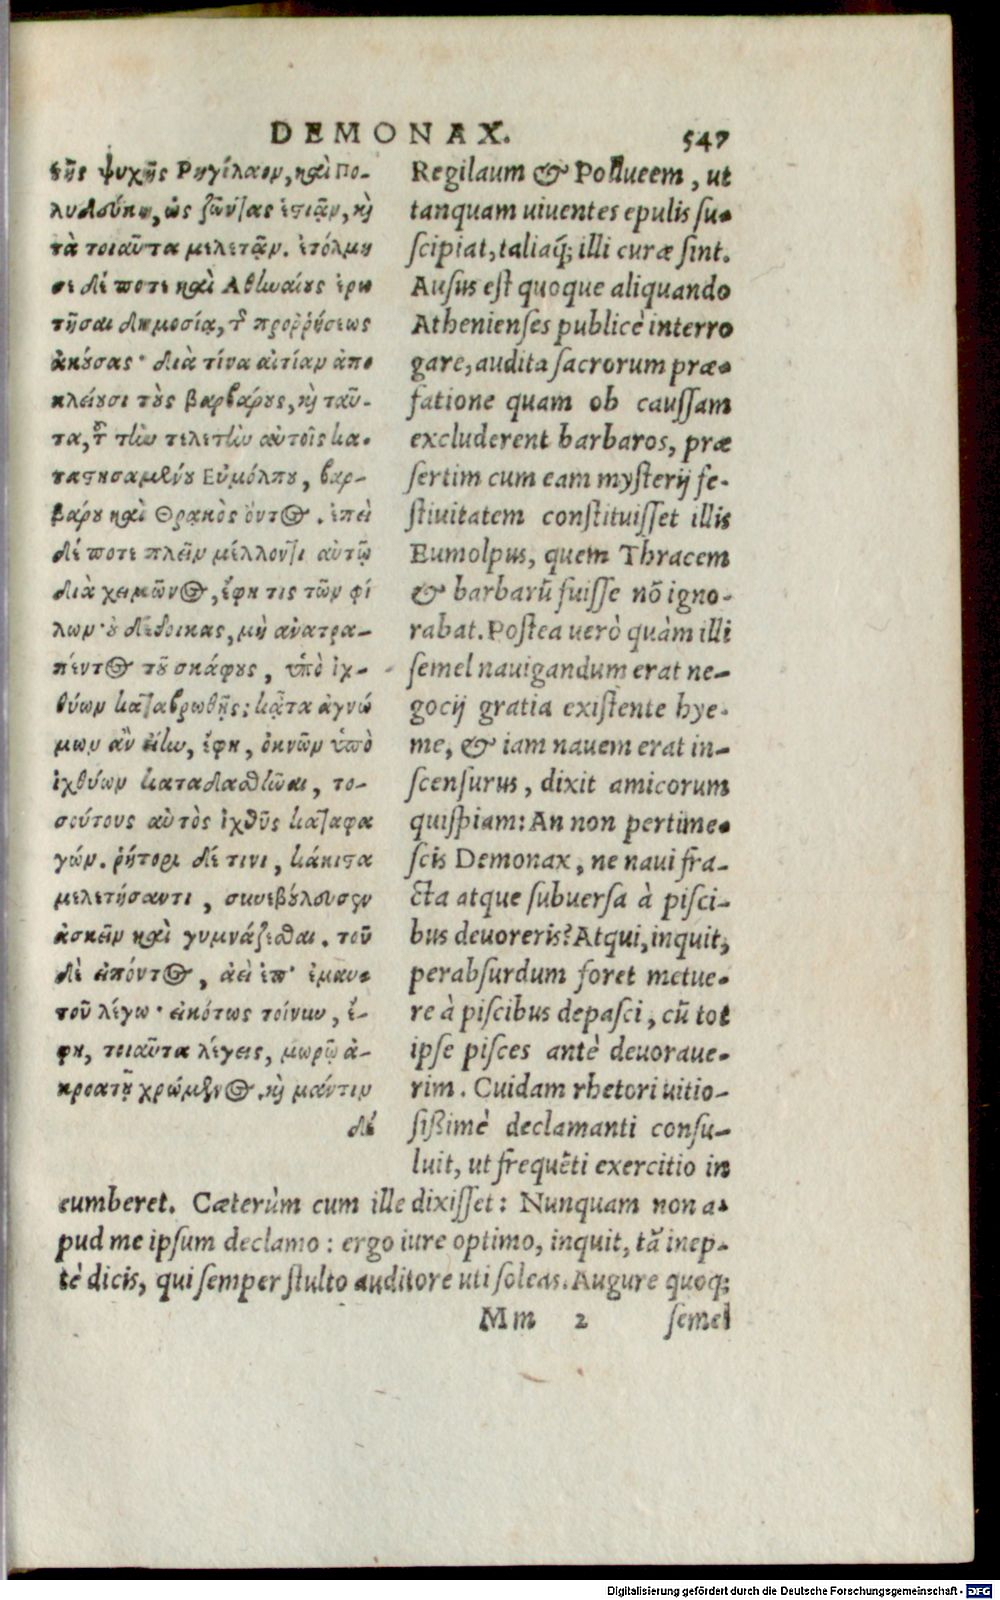 DEMONAX. 547
τῆς ψυχῆς Ρηγίλαον, καὶ Πο-
λυδεύκη, ὡς ζῶντας ἑστιᾷν, κὶ
τὰ τοιαῦτα μελετᾷν. ἐτόλμη
σε δέ ποτε καὶ Αθηναίους ἐρω
τῆσαι δημοσίᾳ, τ῀ προῤῥήσεως
ἀκούσας· διὰ τίνα αἰτίαν ἀπο
κλείουσι τοὺς βαρβάρους, κὶ ταῦ-
τα, τ῀ τὴν τελετὴν αὐτοῖς κα-
ταστησαμένου Εὐμόλπου, βαρ-
βάρου καὶ Θρακὸς ὄντος. ἐπεὶ
δέ ποτε πλεῖν μέλλοντι αὐτῷ
διὰ χειμῶνος, ἔφη τις τῶν φί
λων· οὐ δέδοικας, μὴ ἀνατρα-
πέντος τοῦ σκάφους, ὑπὸ ἰχ-
θύων καταβρωθῇς; κᾆτα ἀγνώ
μων ἂν εἴην, ἔφη, ὀκνῶν ὑπὸ
ἰχθύων καταδασθῆναι, το-
σούτους αὐτὸς ἰχθῦς καταφα
γών. ῥήτορι δέ τινι, κάκιστα
μελετήσαντι, συνεβούλευσεν
ἀσκεῖν καὶ γυμνάζεσθαι. τοῦ
δὲ εἰπόντος, ἀεὶ ἐπ' ἐμαυ-
τοῦ λέγω· εἰκότως τοίνυν, ἔ-
φη, τοιαῦτα λέγεις, μωρῷ ἀ-
κροατῇ χρώμενος. κὶ μάντιν
δέ
Regilaum & Pollucem, ut
tanquam uiuentes epulis su-
scipiat, taliaq́; illi curæ sint.
Ausus est quoque aliquando
Athenienses publicè interro
gare, audita sacrorum præ-
fatione quam ob caussam
excluderent barbaros, præ
sertim cum eam mysterij fe-
stiuitatem constituisset illis
Eumolpus, quem Thracem
& barbarũ fuisse nõ igno-
rabat. Postea uerò quàm illi
semel nauigandum erat ne-
gocij gratia existente hye-
me, & iam nauem erat in-
scensurus, dixit amicorum
quispiam: An non pertime-
scis Demonax, ne naui fra-
cta atque subuersa à pisci-
bus deuoreris? Atqui, inquit,
perabsurdum foret metue-
re à piscibus depasci, cũ tot
ipse pisces antè deuoraue-
rim. Cuidam rhetori uitio-
sißimè declamanti consu-
luit, ut frequẽti exercitio in
cumberet. Cæterùm cum ille dixisset: Nunquam non a-
pud me ipsum declamo: ergo iure optimo, inquit, tã inep-
tè dicis, qui semper stulto auditore uti soleas. Augure quoq;
Mm 2 semel
Digitalisierung gefördert durch die Deutsche Forschungsgemeinschaft - DFG